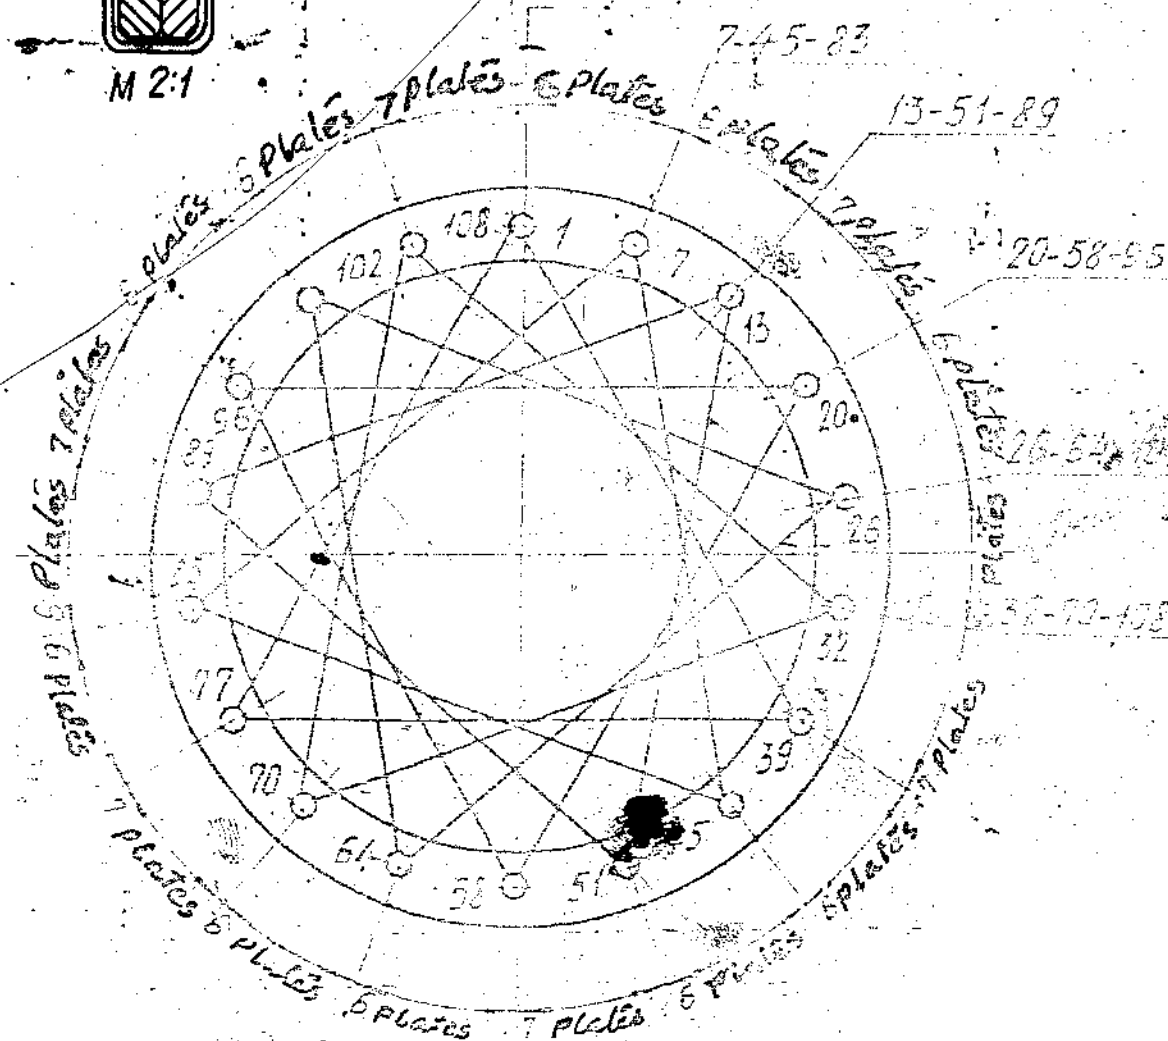 M 2:1
7-45-83
13-51-89
20-58-95
32-70-108
6 Platés
7 Platés
6 Platés
6 Platés
7 Platés
6 Platés
Platés
7 Platés
6 Platés
6 Platés
7 Platés
6 Platés
6 Platés
7 Platés
6 Platés
6 Platés
7 Platés
Platés
108
1
7
13
20
26
32
39
51
58
64
70
77
96
102